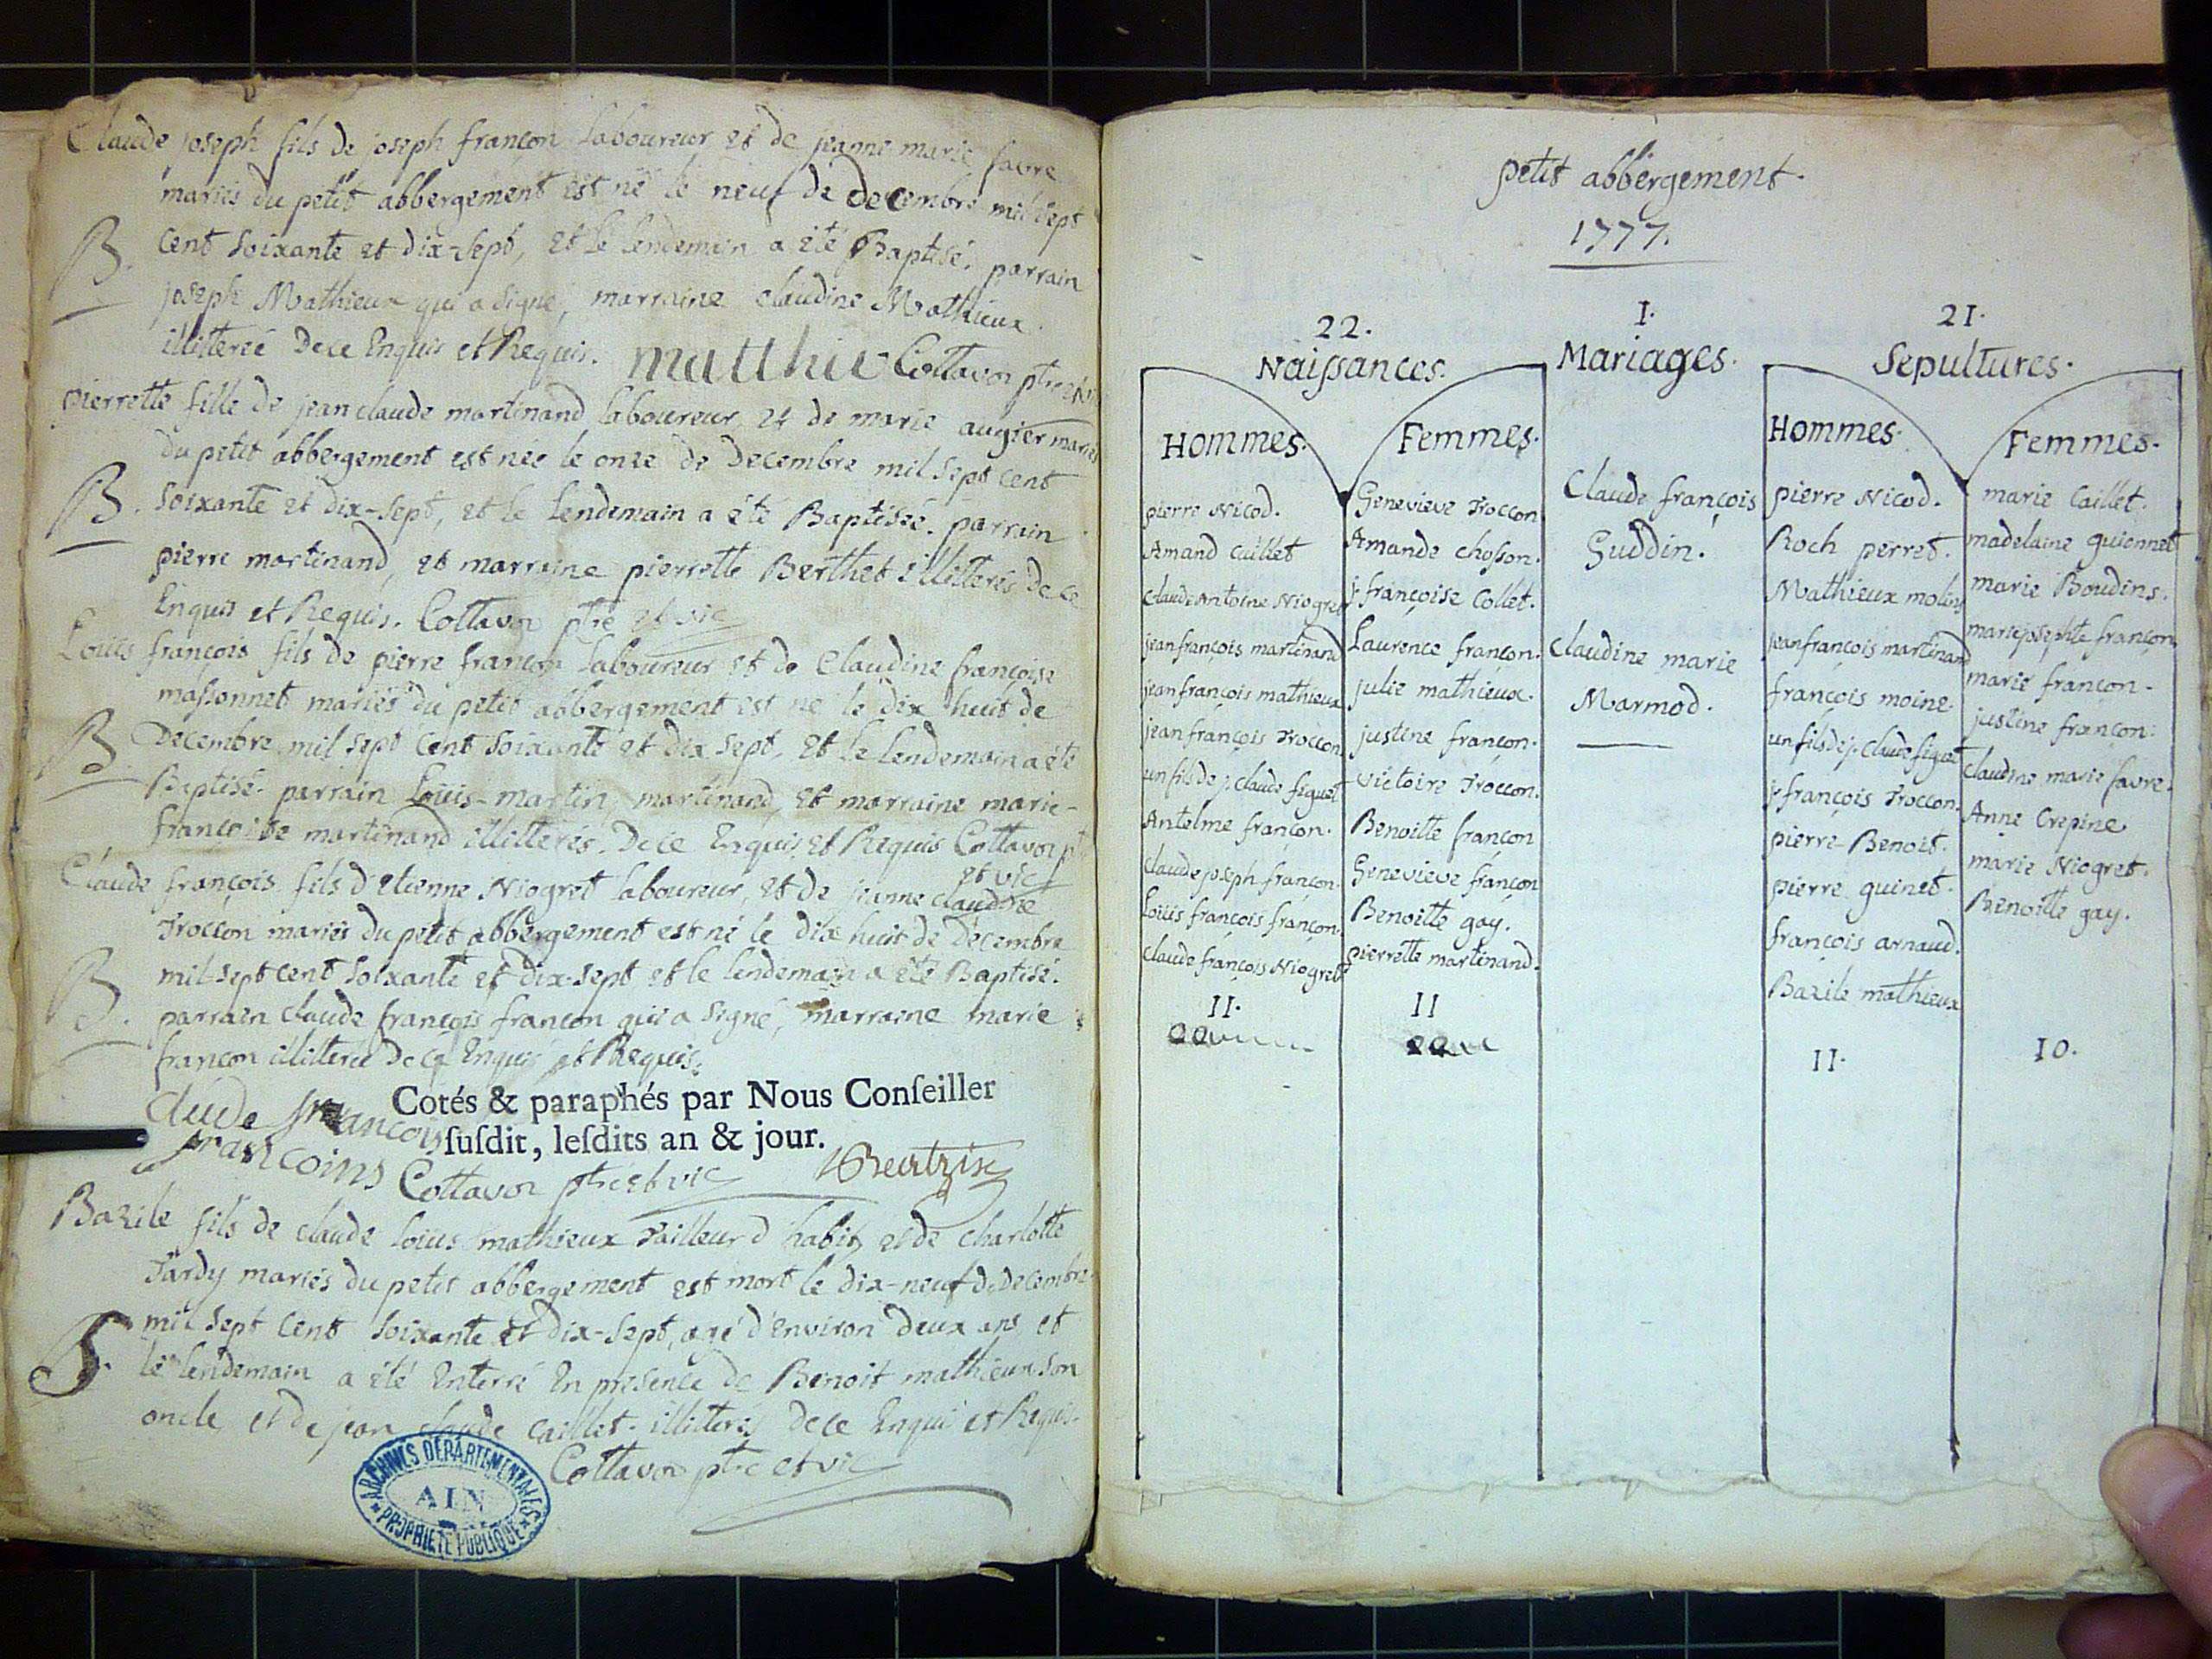 Claude joseph fils de joseph françon Laboureur et de jeanne marie favre
mariés du petit abbergement est né le neuf de decembre mil sept
B. cent soixante et dix-sept, et le lendemain a été Baptisé. parrain
joseph Mathieux qui a signé, marraine claudine Mathieux.
illitterée De ce Enquis et Requis. matthie Cottavoz ptre et vic
pierrette fille de jean claude martinand laboureur et de marie augier mariés
du petit abbergement est née le onze de Decembre mil sept cent
B. soixante et dix-sept, et le lendemain a été Baptisée. parrain
pierre martinand, et marraine pierrette Berthet illitterés de ce
Enquis et Requis. Cottavoz ptre et vic
Louis françois fils de pierre françon Laboureur et de Claudine françoise
massonnet mariés du petit abbergement est né le dix huit de
B. Decembre mil sept cent soixante et dix sept, et le lendemain a été
Baptisé. parrain Louis-martin martinand, et marraine marie-
françoise martinand illitterés. De ce Enquis et Requis Cottavoz ptre
et vic
Claude françois fils d'etienne Niogret laboureur, et de jeanne claudine
Troccon mariés du petit abbergement est né le dix huit de Decembre
B. mil sept cent soixante et dix-sept et le lendemain a été Baptisé.
parrain claude françois françon qui a signé, marraine marie
françon illitterée De ce Enquis et Requis.
Cotés & paraphés par Nous Conseiller
clude franacois
susdit, lesdits an & jour.
francoins Cottavoz ptre et vic
Bazile fils de claude louis mathieux Tailleur d'habits et de charlotte
Tardy mariés du petit abbergement est mort le dix-neuf de decembre
S. mil sept cent soixante et dix-sept, agé d'environ deux ans, et
le lendemain a été Enterré En presence de Benoit mathieux son
oncle, et de jean claude caillet. illitterés de ce Enquis et Requis.
Cottavoz ptre et vic
ARCHIVES DÉPARTEMENTALES
AIN
PROPRIÉTÉ PUBLIQUE
petit abbergement.
1777.
22.
Naissances.
Hommes.
pierre Nicod.
Amand Caillet
Claude Antoine Niogret
jean françois martinand
jean françois mathieux
jean françois Troccon
un fils de j. claude figuet
Antelme françon.
claude joseph françon.
Louis françois françon.
claude françois Niogret
II.
Femmes.
Genevieve Troccon
Amande chosson.
j. françoise Collet.
Laurence françon.
julie mathieux.
justine françon.
victoire Troccon.
Benoitte françon
Genevieve françon
Benoitte gay.
pierrette martinand.
II
I.
Mariages.
Claude françois
Guddin.
Claudine marie
Marmod.
21.
Sepultures.
Hommes.
pierre Nicod.
Roch perret.
Mathieux moliny
jean françois martinand
françois moine.
un fils de j. claude figuet
j. françois Troccon.
pierre Benoit.
pierre guinet.
françois arnaud.
Bazile mathieux
II.
Femmes.
marie Caillet.
madelaine guionnet
marie Boudins.
marie josephte françon
marie françon.
justine françon.
Claudine marie favre.
Anne Crepine
marie Niogret.
Benoitte gay.
10.